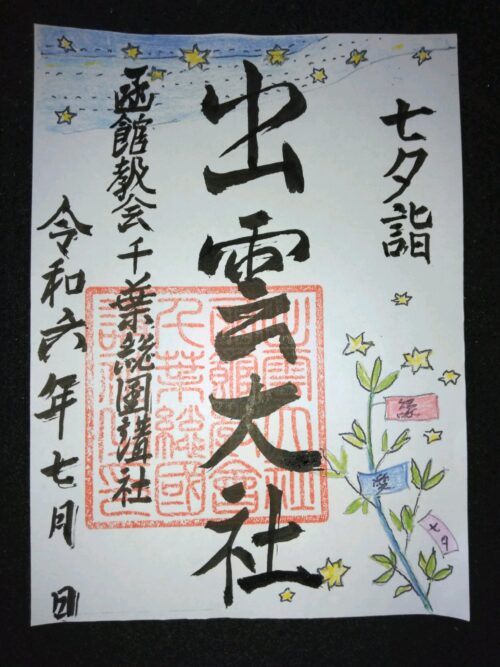 七夕詣
出雲大社
函館教会千葉総国講社
令和六年七月 日
縁
七夕